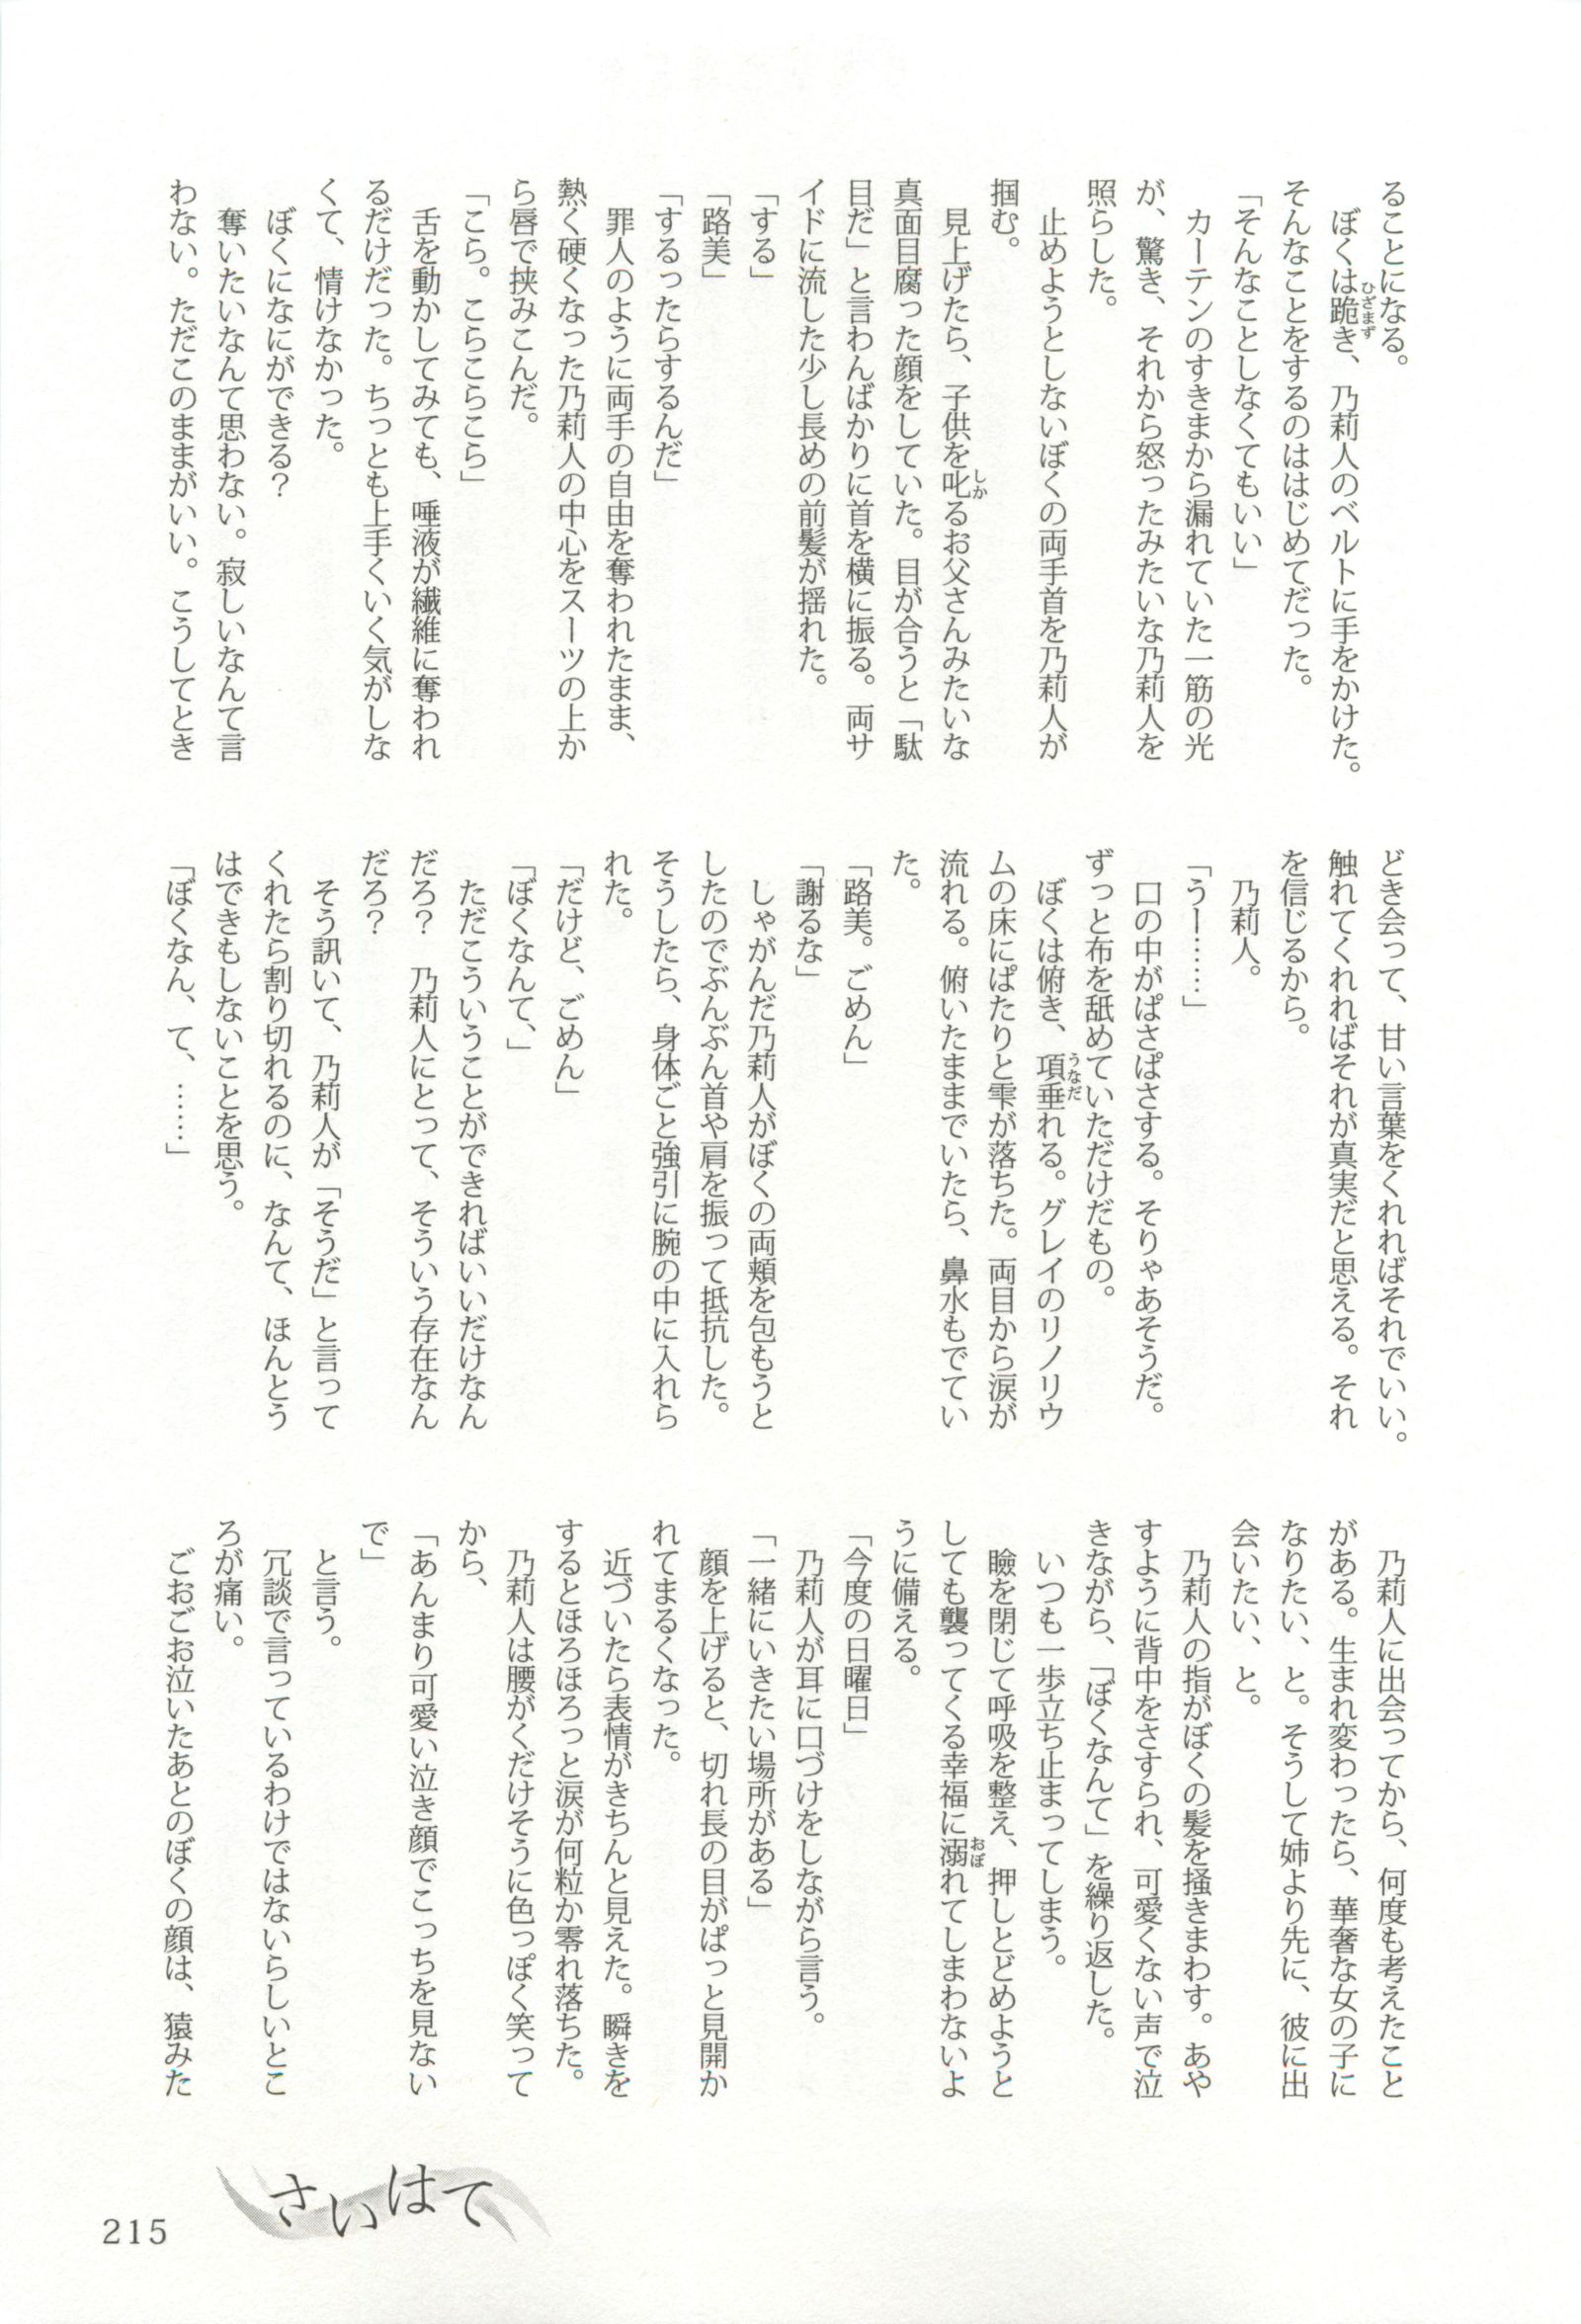 ることになる。
ぼくは跪き、乃莉人のベルトに手をかけた。
ひざまず
そんなことをするのははじめてだった。
「そんなことしなくてもいい」
カーテンのすきまから漏れていた一筋の光
が、驚き、それから怒ったみたいな乃莉人を
照らした。
止めようとしないぼくの両手首を乃莉人が
掴む。
見上げたら、子供を叱るお父さんみたいな
しか
真面目腐った顔をしていた。目が合うと「駄
目だ」と言わんばかりに首を横に振る。両サ
イドに流した少し長めの前髪が揺れた。
「する」
「路美」
「するったらするんだ」
罪人のように両手の自由を奪われたまま、
熱く硬くなった乃莉人の中心をスーツの上か
ら唇で挟みこんだ。
「こら。こらこらこら」
舌を動かしてみても、唾液が繊維に奪われ
るだけだった。ちっとも上手くいく気がしな
くて、情けなかった。
ぼくになにができる？
奪いたいなんて思わない。寂しいなんて言
わない。ただこのままがいい。こうしてとき
どき会って、甘い言葉をくれればそれでいい。
触れてくれればそれが真実だと思える。それ
を信じるから。
乃莉人。
「うー……」
口の中がぱさぱさする。そりゃあそうだ。
ずっと布を舐めていただけだもの。
ぼくは俯き、項垂れる。グレイのリノリウ
うなだ
ムの床にぱたりと雫が落ちた。両目から涙が
流れる。俯いたままでいたら、鼻水もでてい
た。
「路美。ごめん」
「謝るな」
しゃがんだ乃莉人がぼくの両頬を包もうと
したのでぶんぶん首や肩を振って抵抗した。
そうしたら、身体ごと強引に腕の中に入れら
れた。
「だけど、ごめん」
「ぼくなんて、」
ただこういうことができればいいだけなん
だろ？　乃莉人にとって、そういう存在なん
だろ？
そう訊いて、乃莉人が「そうだ」と言って
くれたら割り切れるのに、なんて、ほんとう
はできもしないことを思う。
「ぼくなん、て、……」
乃莉人に出会ってから、何度も考えたこと
がある。生まれ変わったら、華奢な女の子に
なりたい、と。そうして姉より先に、彼に出
会いたい、と。
乃莉人の指がぼくの髪を掻きまわす。あや
すように背中をさすられ、可愛くない声で泣
きながら、「ぼくなんて」を繰り返した。
いつも一歩立ち止まってしまう。
瞼を閉じて呼吸を整え、押しとどめようと
しても襲ってくる幸福に溺れてしまわないよ
おぼ
うに備える。
「今度の日曜日」
乃莉人が耳に口づけをしながら言う。
「一緒にいきたい場所がある」
顔を上げると、切れ長の目がぱっと見開か
れてまるくなった。
近づいたら表情がきちんと見えた。瞬きを
するとほろほろっと涙が何粒か零れ落ちた。
乃莉人は腰がくだけそうに色っぽく笑って
から、
「あんまり可愛い泣き顔でこっちを見ない
で」
と言う。
冗談で言っているわけではないらしいとこ
ろが痛い。
ごおごお泣いたあとのぼくの顔は、猿みた
さいはて
215